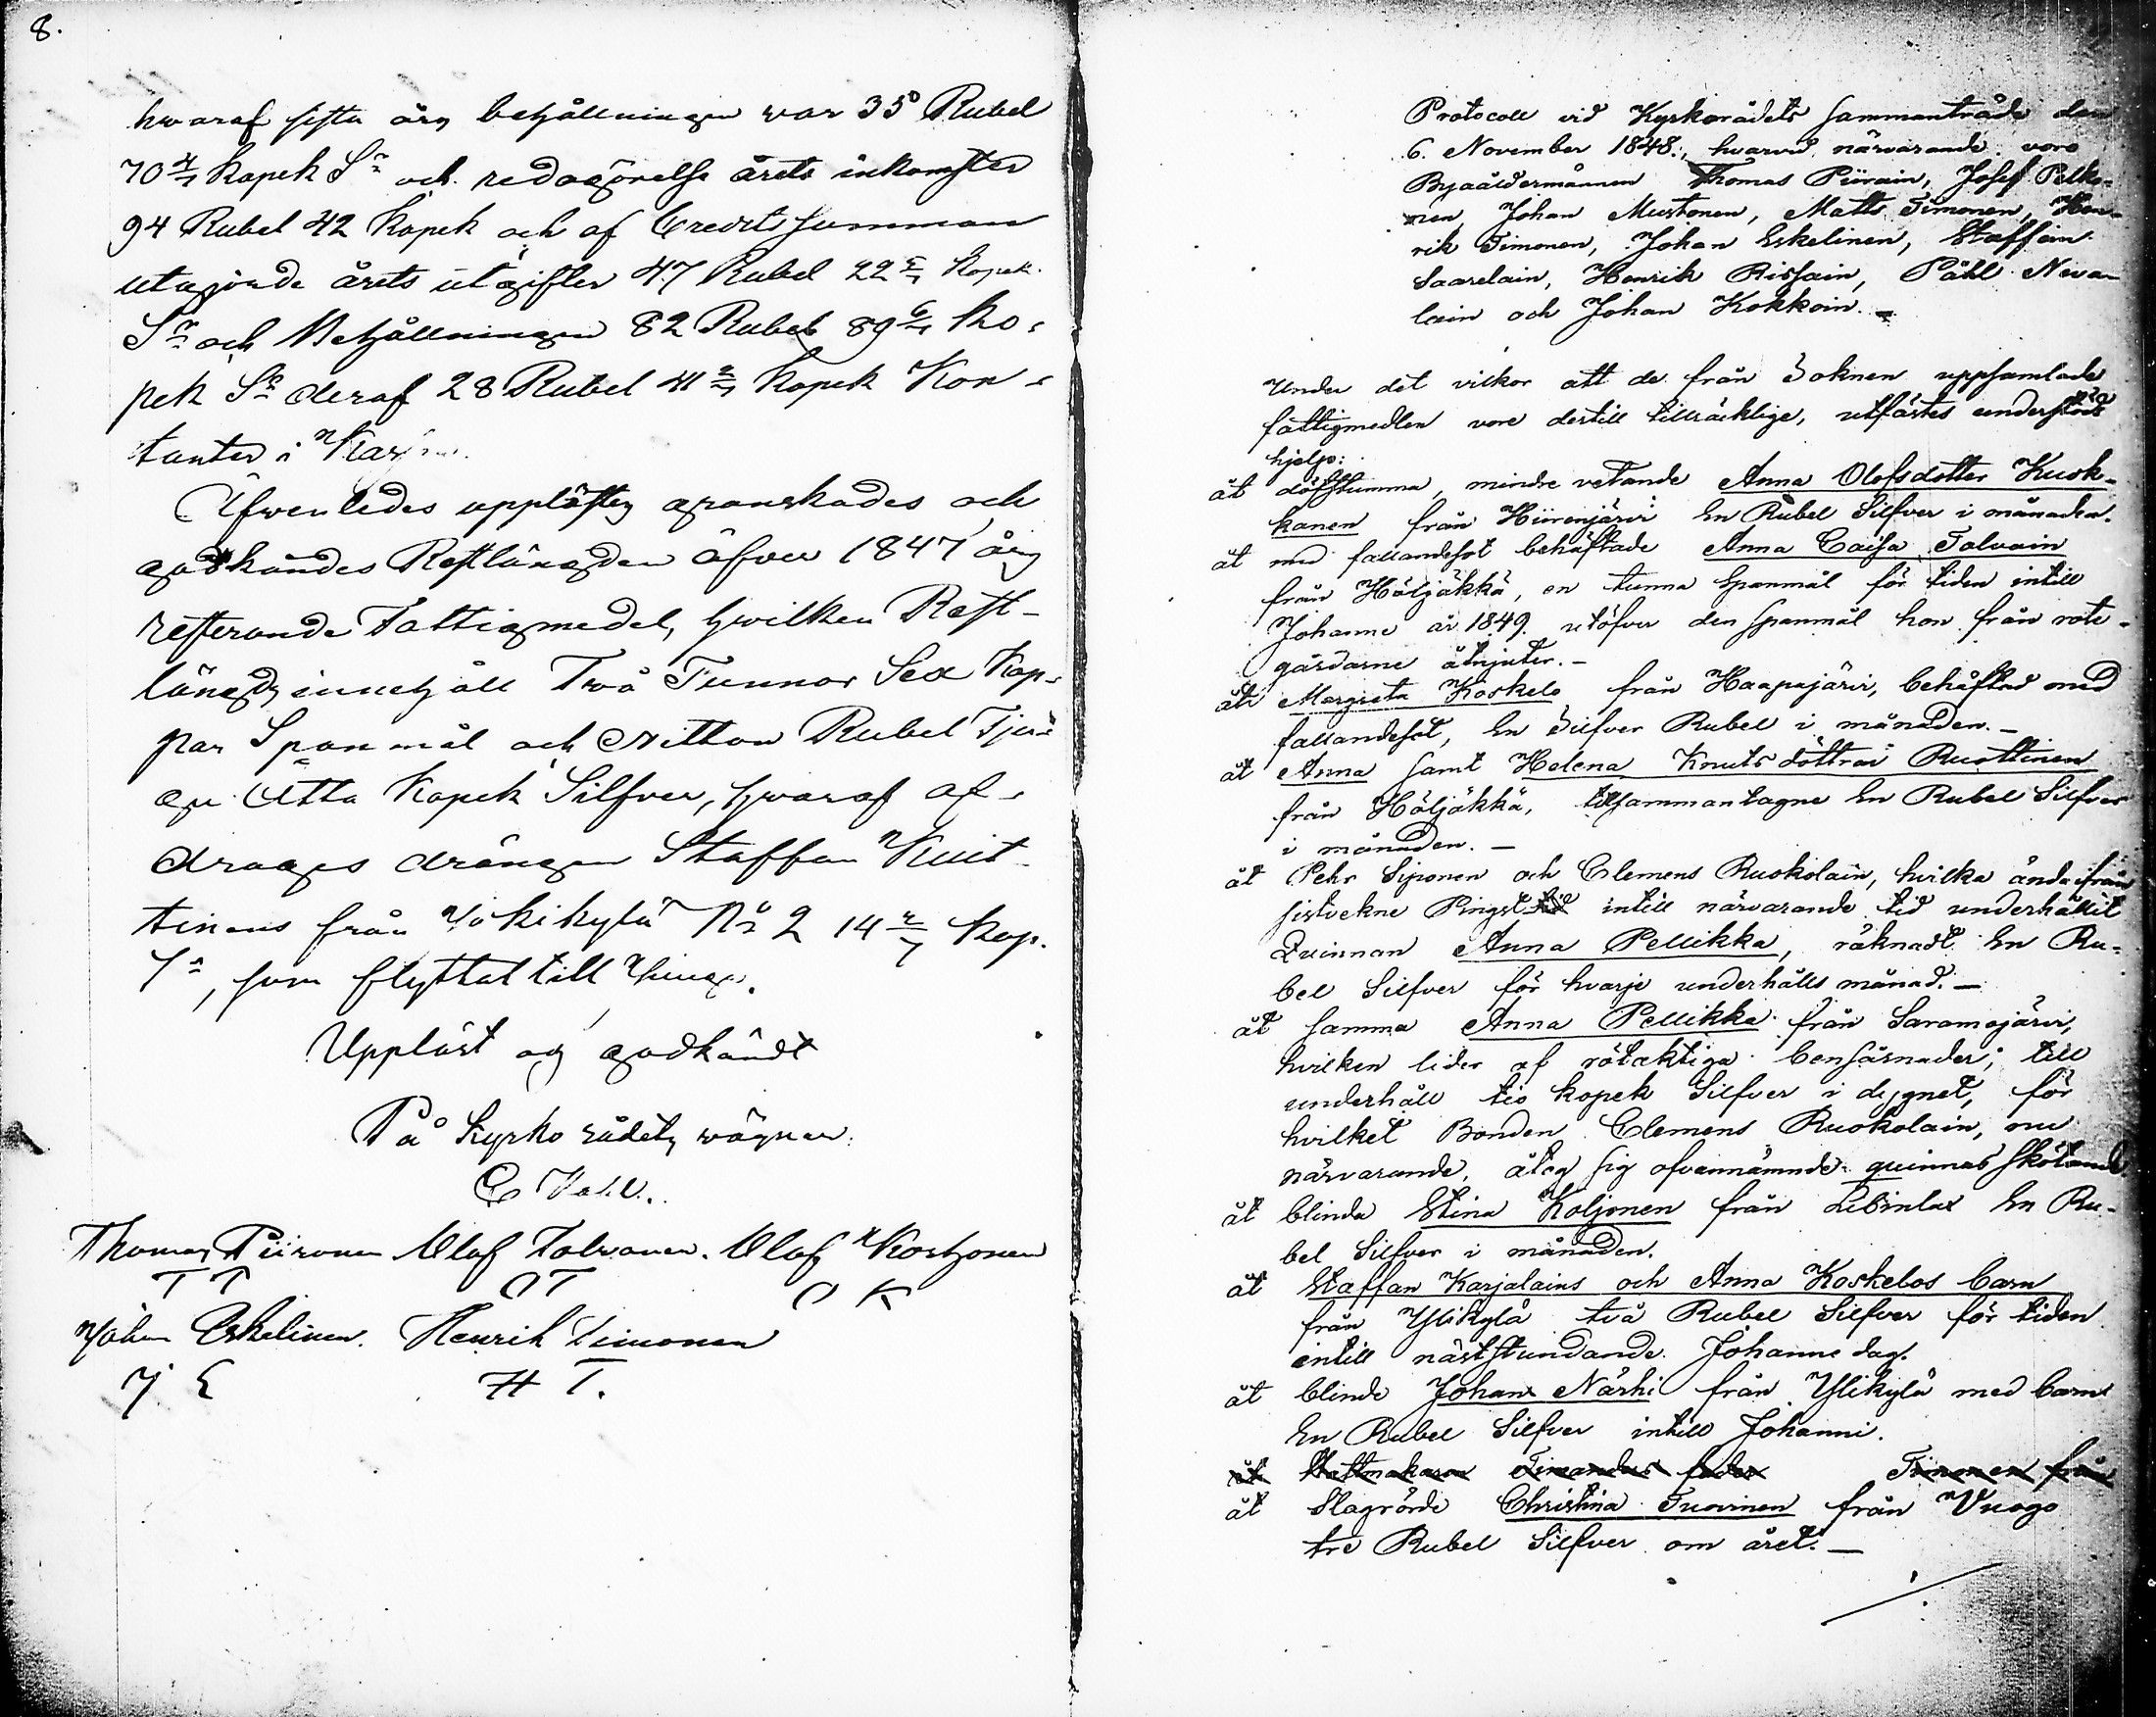 8.
hwaraf sista års behållningen war 35 Rubel
70 4/7 Kopek Sr och redogörelse årets inkomster
94 Rubel 42 Kopek och af Credit summan
utgjorde årets utgifter 47 Rubel 22 5/7 Kopek
Sr och Behållningen 82 Rubel 89 6/7 Ko-
pek Sr deraf 28 Rubel 41 2/7 Kopek Kon-
tanter i
Äfwenledes upplästes granskades och
godkändes Restlängden öfver 1847 års
resterande Fattigmedel, hwilken Rest-
längds innehåll Två Tunnor Sex Kap-
par Spanmål och Nitton Rubel Tju-
gu Åtta Kopek Silfver, hwaraf af-
drages drängen Staffan Kuit-
tinens från Jokikylä No 2 14 2/7 Kop.
Sr, som flyttat till
Uppläst och godkändt
På Kyrko rådets wägnar:
Thomas Piironen Olof Tolvanen. Olof Korhonen
T P OT O K
Johan Eskelinen. Henrik Timonen
J E H T.
Protocoll vid Kyrkorådets sammanträde den
6. November 1848., hvarvid närvarande voro
Byaåldermännen Thomas Piirain, Josef Pelko-
nen, Johan Mustonen, Matts Timonen, Hen-
rik Timonen, Johan Eskelinen, Staffan
Saarelain, Henrik Rissain, Påhl Neva-
lain och Johan Kokkoin. –
Under det vilkor att de från Soknen uppsamlade
fattigmedlen vore dertill tillräcklige, utfästes understöds
hjelp:
åt döfstumma, mindre vetande Anna Olofsdotter Kusk-
kanen från Hiirenjärvi En Rubel Silfver i månaden.
åt med fallandesot behäftade Anna Caisa Tolvain
från Höljäkkä, en tunna Spanmål för tiden intill
Johanne år 1849. utöfver den spanmål hon från rote-
gårdarne åtnjuter. –
åt Margreta Koskelo från Haapajärvi, behäftad med
fallandesot, En Silfver Rubel i månaden. –
åt Anna samt Helena Knutsdöttrar Ruottinen
från Höljäkkä, tillsammantagne En Rubel Silfver
i månaden. –
åt Pehr Siponen och Clemens Ruokolain, hvilka ända ifrån
sistvekne Pingst tid intill närvarande tid underhållit
Quinnan Anna Pellikka, räknadt En Ru-
bel Silfver för hvarje underhålls månad. –
åt samma Anna Pellikka från Saramojärvi,
hvilken lider af rötaktiga bensårnader; till
underhåll tio kopek Silfver i dygnet, för
hvilket Bonden Clemens Ruokolain, nu
närvarande, åtog sig ofvannämnde quinnas skötande.
åt blinda Stina Koljonen från Libinlax En Ru-
bel Silfver i månaden.
åt Staffan Karjalains och Anna Koskelos barn
från Ylikylä två Rubel Silfver för tiden
intill näststundande Johanne dag.
åt blinde Johan Närhi från Ylikylä med barn
En Rubel Silfver intill Johanni.
åt Hattmakaren fader Timonen från
åt Slagrörde Christina Tuovinen från Vuogo
tre Rubel Silfver om året. –